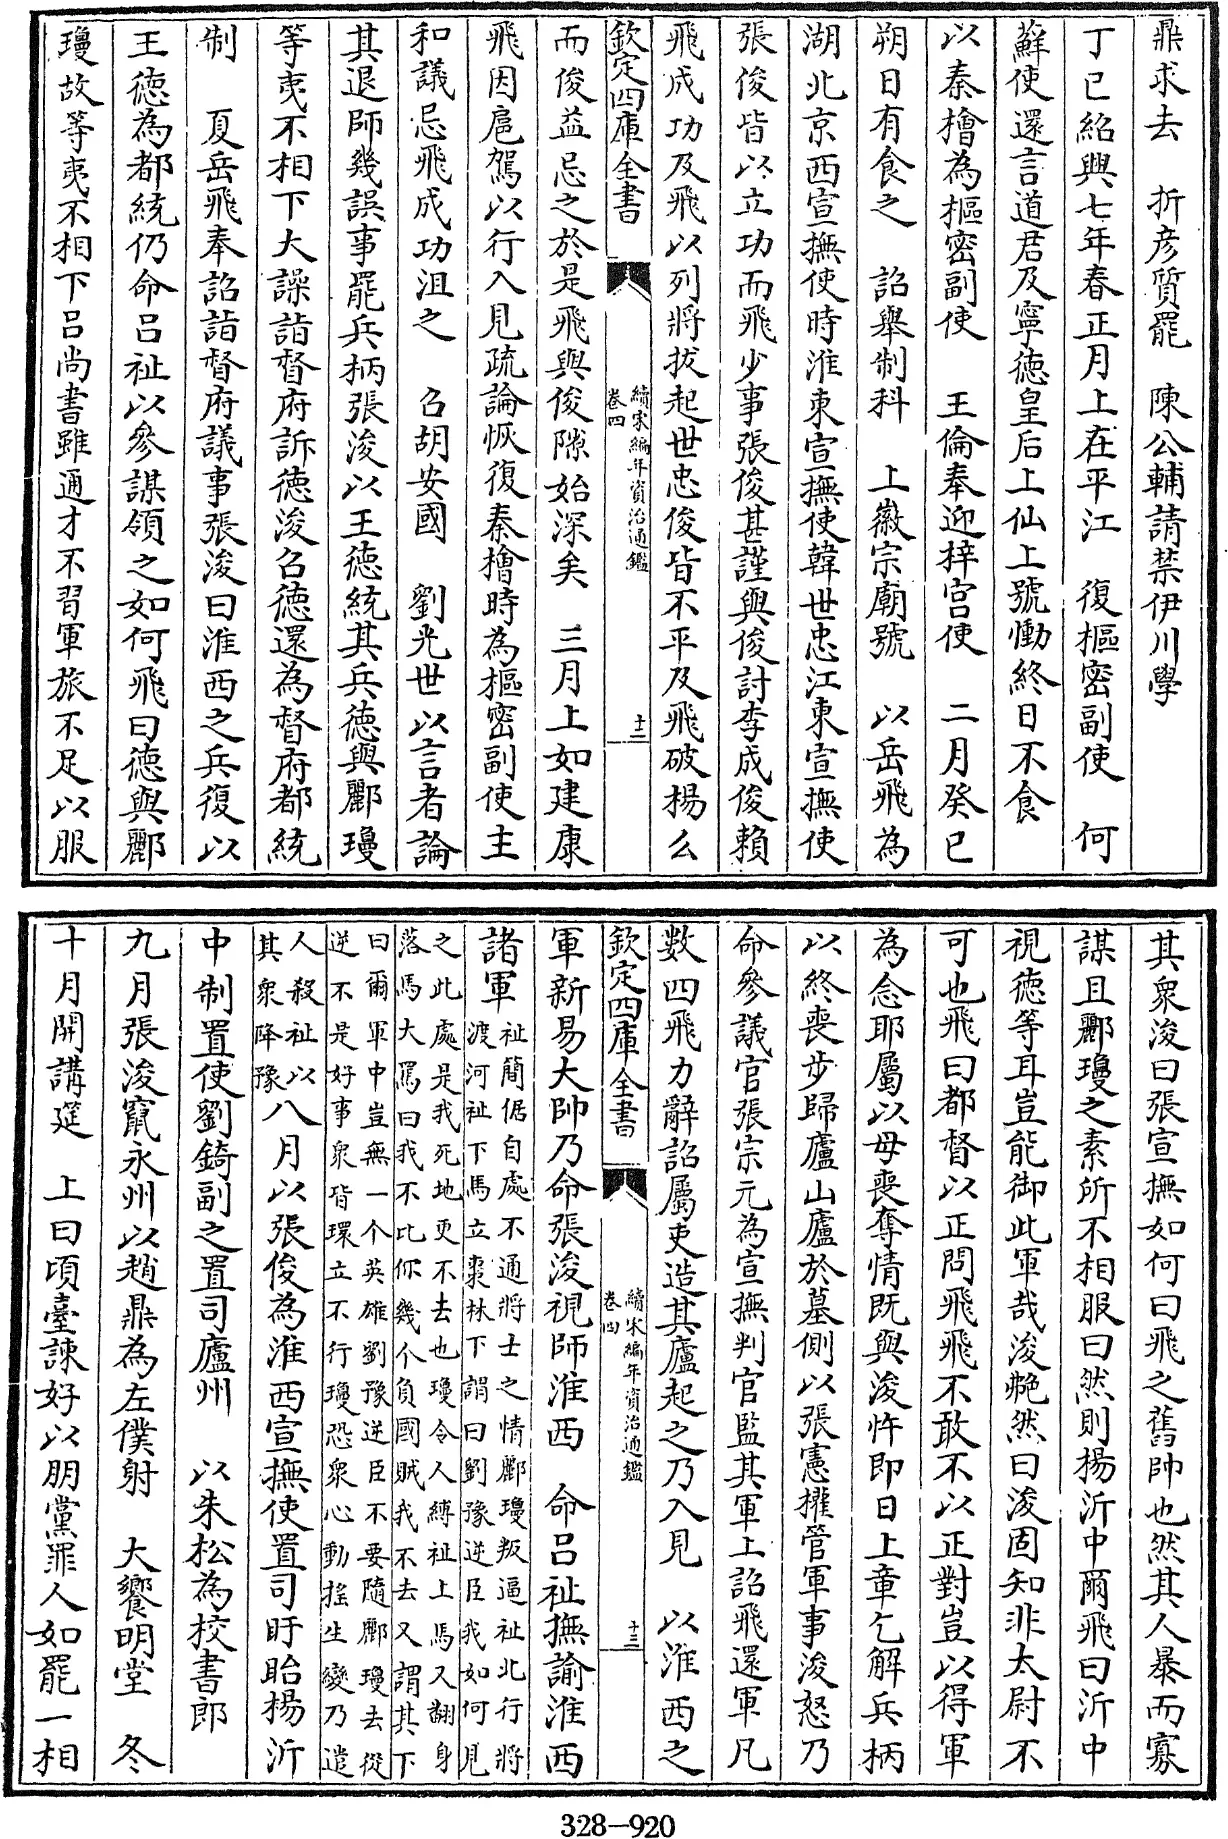 鼎求去　折彦質罷　陳公輔請禁伊川學
丁巳紹興七年春正月上在平江　復樞密副使　何
蘇使還言道君及寧德皇后上仙上號慟終日不食
以秦檜為樞密副使　王倫奉迎梓宫使　二月癸巳
朔日有食之　詔舉制科　上徽宗廟號　以岳飛為
湖北京西宣撫使時淮東宣撫使韓世忠江東宣撫使
張俊皆以立功而飛少事張俊甚謹與俊討李成俊賴
飛成功及飛以列將拔起世忠俊皆不平及飛破楊么
欽定四庫全書
續宋編年資治通鑑
卷四
十二
而俊益忌之於是飛與俊隙始深矣　三月上如建康
飛因扈駕以行入見疏論恢復秦檜時為樞密副使主
和議忌飛成功沮之　召胡安國　劉光世以言者論
其退師幾誤事罷兵柄張浚以王德統其兵德與酈瓊
等夷不相下大譟詣督府訴德浚召德還為督府都統
制　夏岳飛奉詔詣督府議事張浚曰淮西之兵復以
王德為都統仍命吕祉以參謀領之如何飛曰德與酈
瓊故等夷不相下吕尚書雖通才不習軍旅不足以服
其衆浚曰張宣撫如何曰飛之舊帥也然其人暴而寡
謀且酈瓊之素所不相服曰然則楊沂中爾飛曰沂中
視德等耳豈能御此軍哉浚艴然曰浚固知非太尉不
可也飛曰都督以正問飛飛不敢不以正對豈以得軍
為念耶屬以母喪奪情既與浚忤即日上章乞解兵柄
以終喪步歸廬山廬於墓側以張憲權管軍事浚怒乃
命參議官張宗元為宣撫判官監其軍上詔飛還軍凡
數四飛力辭詔屬吏造其廬起之乃入見　以淮西之
欽定四庫全書
續宋編年資治通鑑
卷四
十三
軍新易大帥乃命張浚視師淮西　命吕祉撫諭淮西
諸軍祉簡倨自處不通將士之情酈瓊叛逼祉北行將
渡河祉下馬立棗林下謂曰劉豫逆臣我如何見
之此處是我死地更不去也瓊令人縛祉上馬又翻身
落馬大罵曰我不比你幾个負國賊我不去又謂其下
曰爾軍中豈無一个英雄劉豫逆臣不要隨酈瓊去從
逆不是好事衆皆環立不行瓊恐衆心動摇生變乃遣
人殺祉以
其衆降豫八月以張俊為淮西宣撫使置司盱眙楊沂
中制置使劉錡副之置司廬州　以朱松為校書郎
九月張浚竄永州以趙鼎為左僕射　大饗明堂　冬
十月開講筵　上曰頃臺諫好以朋黨罪人如罷一相
328-920